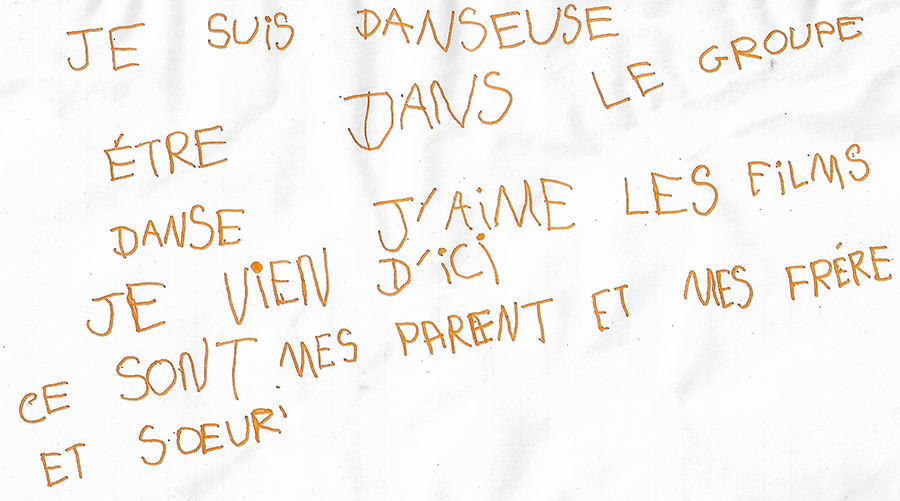 JE SUIS DANSEUSE
DANS LE GROUPE
ÉTRE
DANSE J'AIME LES FILMS
JE VIEN D'ICI
CE SONT MES PARENT ET MES FRÉRE
ET SOEUR